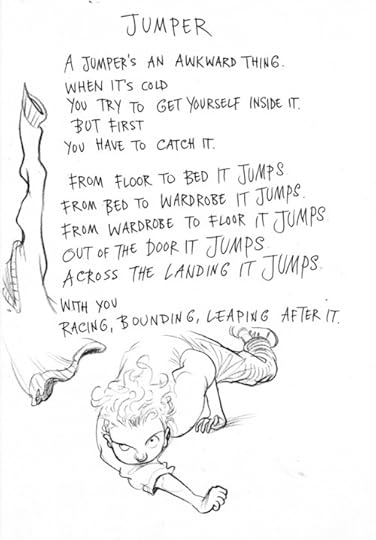 JUMPER
A JUMPER'S AN AWKWARD THING.
WHEN IT'S COLD
YOU TRY TO GET YOURSELF INSIDE IT.
BUT FIRST
YOU HAVE TO CATCH IT.
FROM FLOOR TO BED IT JUMPS
FROM BED TO WARDROBE IT JUMPS.
FROM WARDROBE TO FLOOR IT JUMPS
OUT OF THE DOOR IT JUMPS.
ACROSS THE LANDING IT JUMPS.
WITH YOU
RACING, BOUNDING, LEAPING AFTER IT.